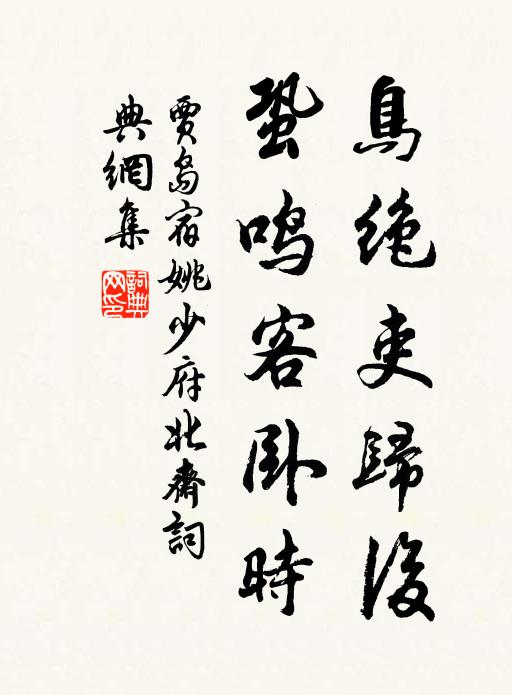 鳥絶吏歸後
蛩鳴客卧時
賈島宿姚少府北齋詞
典網集
詞典
网印